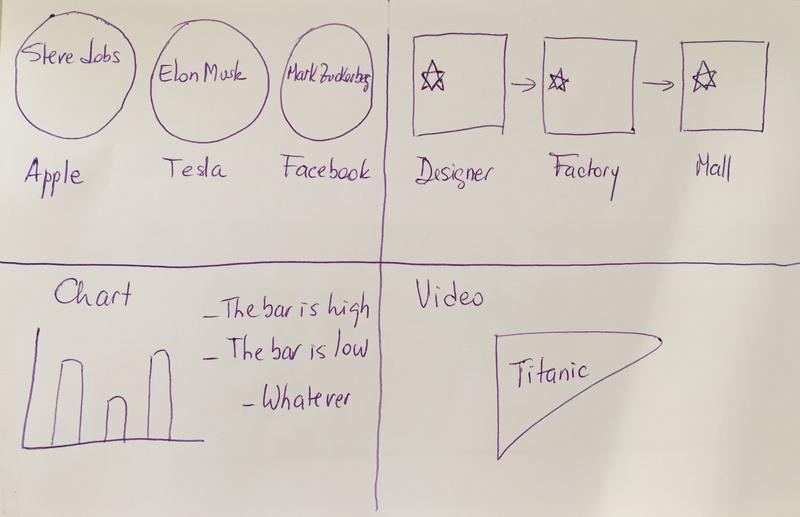 Steve Jobs
Elon Musk
Mark Zuckerberg
Apple
Tesla
Facebook
Designer
Factory
Mall
Chart
- The bar is high
- The bar is low
- Whatever
Video
Titanic